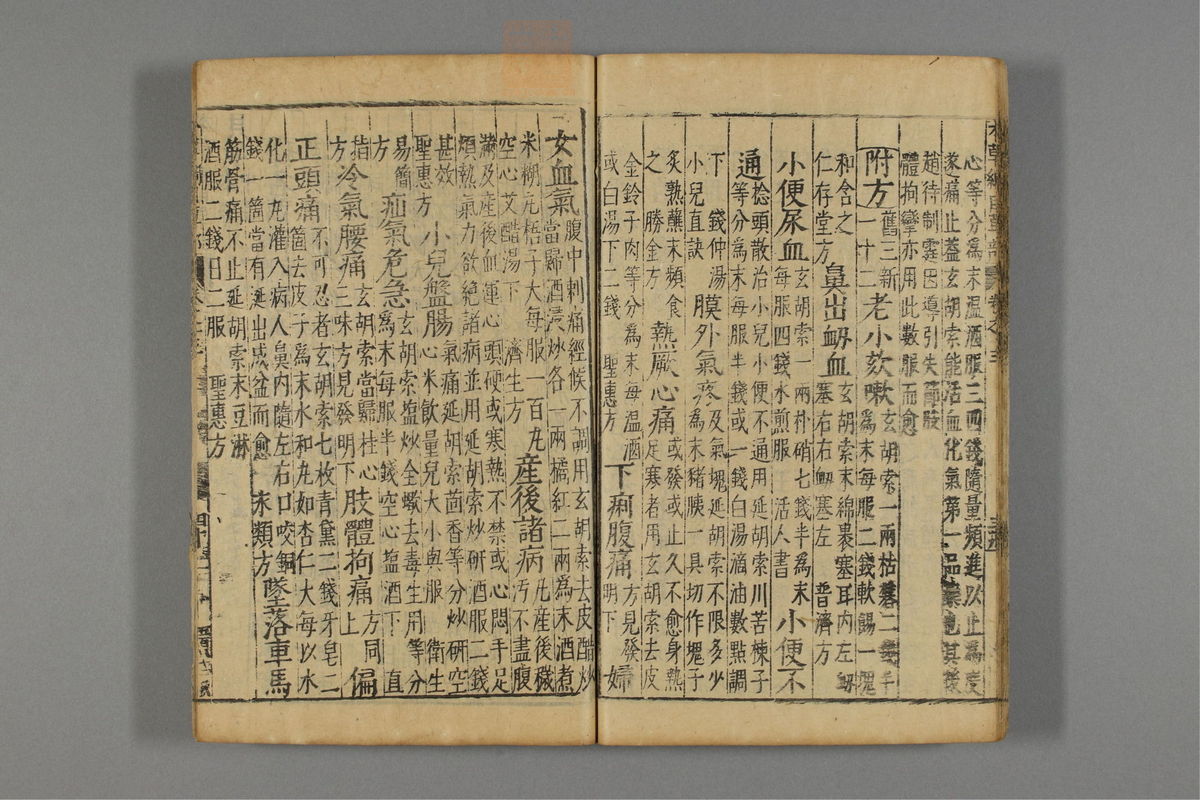 心等分為末溫酒服三四錢隨量頻進以止為度
遂痛止蓋玄胡索能活血化氣第一品藥也其後
趙待制霆因導引失節肢
體拘攣亦用此數服而愈
附方舊三新一十二 老小欬嗽玄胡索一兩枯礬二錢半為末每服二錢軟餳一塊
和含之 仁存堂方 鼻出衄血玄胡索末綿裹塞耳內左衄塞右右衄塞左 普濟方
小便尿血玄胡索一兩朴硝七錢半為末每服四錢水煎服 活人書 小便不
通捻頭散治小兒小便不通用延胡索川苦楝子等分為末每服半錢或一錢白湯滴油數點調
下 錢仲湯小兒直訣 膜外氣疼及氣塊延胡索不限多少為末豬胰一具切作塊子
炙熟蘸末頻食之 勝金方 熱厥心痛或發或止久不愈身熱足寒者用玄胡索去皮
金鈴子肉等分為末每溫酒或白湯下二錢 聖惠方 下痢腹痛方見發明下 婦
女血氣腹中刺痛經候不調用玄胡索去皮醋炒當歸酒浸炒各一兩橘紅二兩為末酒煮
米糊丸梧子大每服一百丸空心艾醋湯下 濟生方 產後諸病凡產後穢汚不盡腹
滿及產後血運心頭硬或寒熱不禁或心悶手足煩熱氣力欲絕諸病並用延胡索炒研酒服二錢
甚效 聖惠方 小兒盤腸氣痛延胡索茴香等分炒研空心米飲量兒大小與服 衛生
易簡方 疝氣危急玄胡索塩炒全蠍去毒生用等分為末每服半錢空心塩酒下 直
指方 冷氣腰痛玄胡索當歸桂心三味方見發明下 肢體拘痛方同上 偏
正頭痛不可忍者玄胡索七枚青黛二錢牙皂二箇去皮子為末水和丸如杏仁大每以水
化一丸灌入病人鼻內隨左右口咬銅錢一箇當有涎出成盆而愈 永類方 墜落車馬
筋骨痛不止延胡索末豆淋酒服二錢日二服 聖惠方